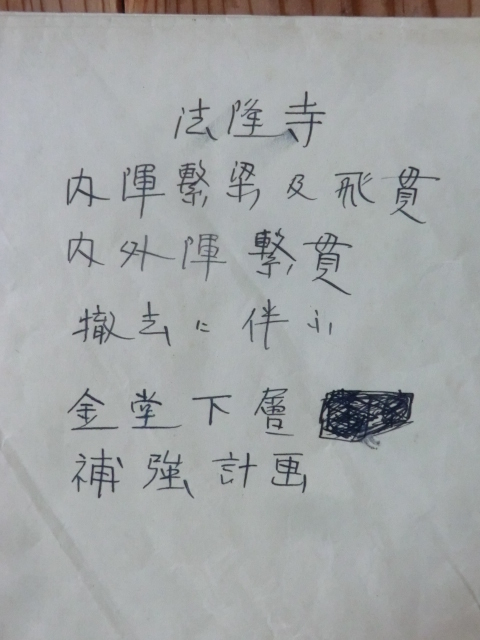 法隆寺
内陣繋梁及飛貫
内外陣繋貫
撤去ニ伴ふ
金堂下層
補強計画